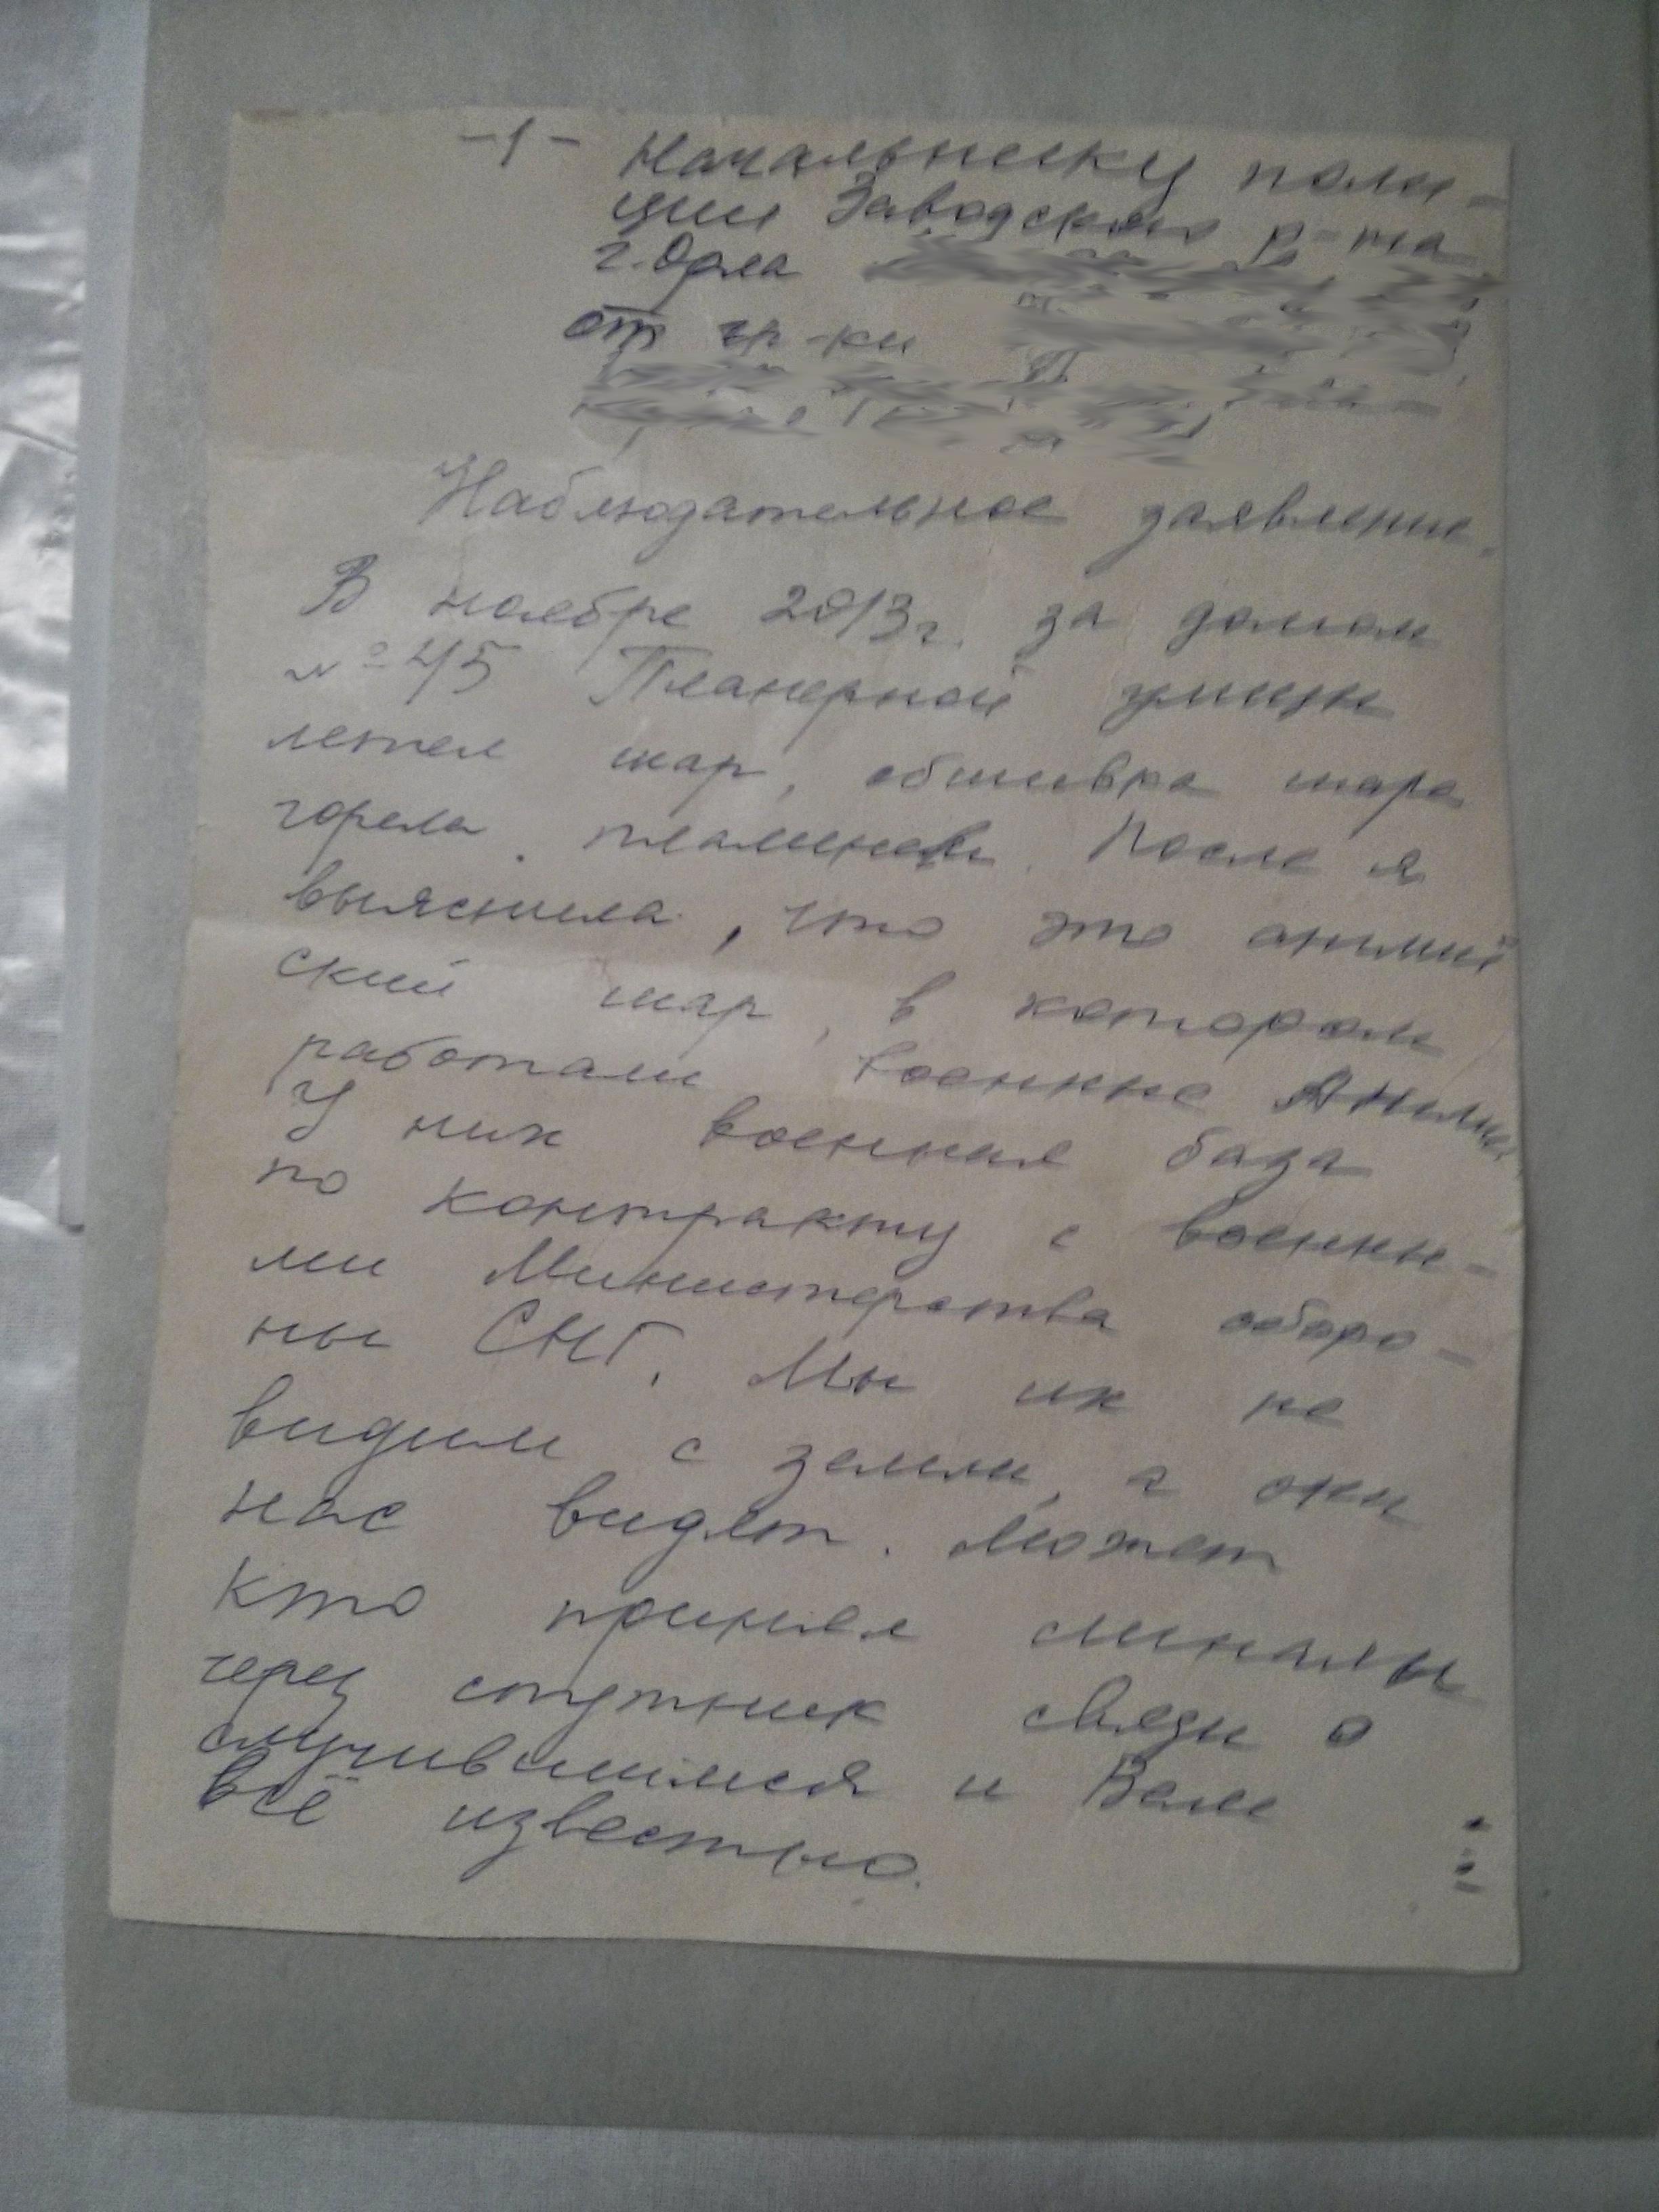 -1- Начальнику поли-
ции Заводского р-на
г. Орла
от гр-ки
Наблюдательное заявление.
В ноябре 2013г. за домом
№ 45 Планерной улицы
летел шар, обшивка шара
горела пламенем. После я
выяснила, что это англий
ский шар, в котором
работали военные Англии.
У них военная база
по контракту с военны-
ми Министерства оборо-
ны СНГ. Мы их не
видим с земли, а они
нас видят. Может
кто принял сигналы
через спутник связи о
случившимся и Вам
всё известно.